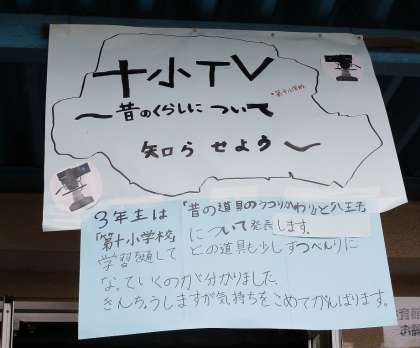 十小TV
*第十小学校
〜昔のくらしについて
知らせよう〜
3年生は「昔の道具のうつりかわりと八王子」
「第十小学校」について発表します。
学習を通してどの道具も少しずつべんりに
なっていくのが分かりました。
きんちょうしますが気持ちをこめてがんばります。